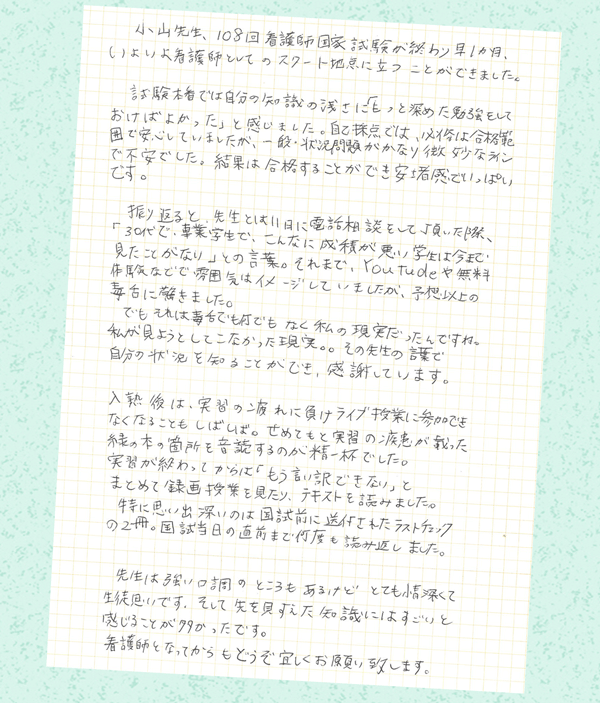 小山先生、108回看護師国家試験が終わり早1カ月、
いよいよ看護師としてのスタート地点に立つことができました。
試験本番では自分の知識の浅さに「もっと深めた勉強をして
おけばよかった」と感じました。自己採点では、必修は合格範
囲で安心していましたが、一般・状況問題がかなり微妙なライン
で不安でした。結果は合格することができ安堵感でいっぱい
です。
振り返ると、先生とは11日に電話相談をして頂いた際、
「30代で、専業学生で、こんなに成績が悪い学生は今まで
見たことがない」との言葉。それまで、Youtubeや無料
体験などで雰囲気はイメージしていましたが、予想以上の
毒舌に驚きました。
でもそれは毒舌でも何でもなく私の現実だったんですね。
私が見ようとしてこなかった現実。。その先生の言葉で
自分の状況を知ることができ、感謝しています。
入塾後は、実習の疲れに負けライブ授業に参加でき
なくなることもしばしば。せめてもと実習の疾患が載った
緑の本の箇所を音読するのが精一杯でした。
実習が終わってからは「もう言い訳できない」と
まとめて録画授業を見たり、テキストを読みました。
特に思い出深いのは国試前に送付されたラストチェック
の2冊。国試当日の直前まで何度も読み返しました。
先生は強い口調のところもあるけどとても情深くて
生徒思いです。そして先を見すえた知識にはすごいと
感じることが多かったです。
看護師となってからもどうぞ宜しくお願い致します。